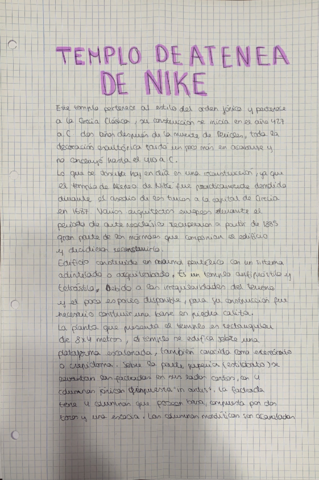 TEMPLO DE ATENEA
DE NIKE
Este templo pertenece al estilo del orden jónico y pertenece
a la Grecia Clásica, su construcción se inicia en el año 427
a.C dos años después de la muerte de Pericles, toda la
decoración escultórica tarda un poco más en acabarse y
no concluyó hasta el 410 a C.
Lo que se conserva hoy en día es una reconstrucción, ya que
el templo de Atenea de Nike fue prácticamente demolido
durante el asedio de los turcos a la capital de Grecia
en 1687. Varios arquitectos europeos durante el
período de auge recuperaron a partir de 1835
gran parte de los mármoles que componían el edificio
y decidieron reconstruirlo.
Edificio construido en mármol pentélico con un sistema
adintelado o arquitrabado. Es un templo anfipróstilo y
tetrástilo, debido a las irregularidades del terreno
y el poco espacio disponible, para su construcción fue
necesario construir una base en piedra caliza.
La planta que presenta el templo es rectangular
de 8x4 metros, el templo se edifica sobre una
plataforma escalonada, también conocida como
o crepidoma. Sobre la parte superior (estilobato) se
levantan las fachadas en sus lados cortos, con 4
columnas jónicas
tiene 4 columnas que poseen basa, compuesta por dos
toros y una escocia. Las columnas monolíticas son acanaladas